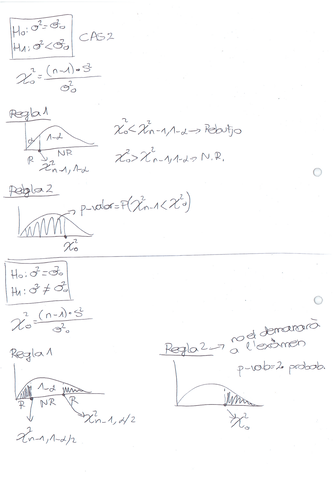 H₀: σ² = σ²₀
H₁: σ² < σ²₀
CAS 2
χ²₀ = (n-1)·S² / σ²₀
Regla 1
α 1-α
R NR
χ²n-1, 1-α
χ²₀ < χ²n-1, 1-α → Rebutjo
χ²₀ > χ²n-1, 1-α → N.R.
Regla 2
p-valor = P(χ²n-1 < χ²₀)
χ²₀
H₀: σ² = σ²₀
H₁: σ² ≠ σ²₀
χ²₀ = (n-1)·S² / σ²₀
Regla 1
1-α
R NR R
χ²n-1, α/2
χ²n-1, 1-α/2
Regla 2 → no el demanarà
a l'exàmen
p-valor = 2·probab.
χ²₀